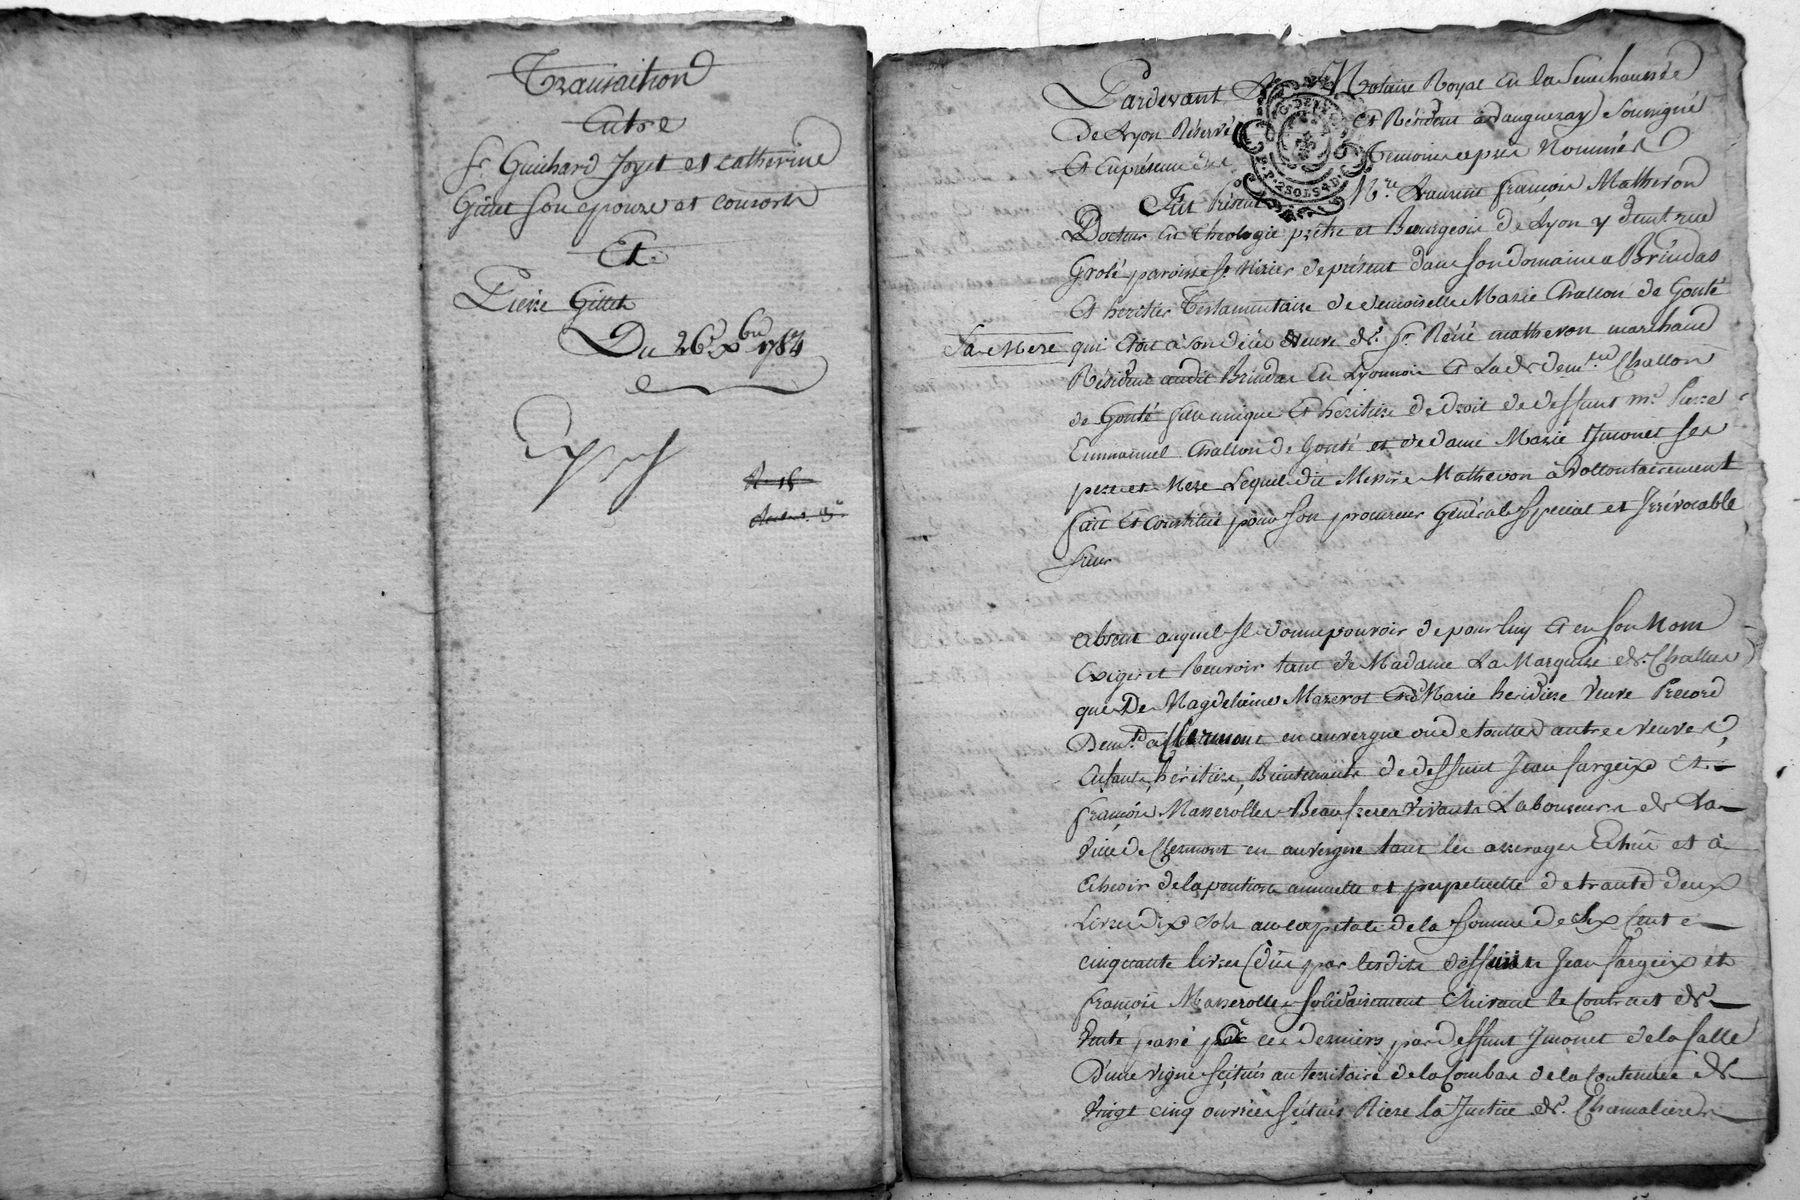 Transaction
Entre
Sr. Guichard Joyet et catherine
Gillet son epouze et consorts
Et
Pierre Gillet
Du 26e. xbre 1784
Expédié
Pardevant Le Notaire Royal en la Senechaussée
de Lyon Réservé et Résident a dauguezay Soussigné
Et en présence des temoins cy après Nommés
Fut Présent Mre. Laurent françois Matheron
Docteur en theologie prêtre et Bourgeois de Lyon y dem.t rue
Grolé paroisse St. Nizier de présent dans son domaine a Brindas
Et heritier Testamentaire de demoiselle Marie Challon de Gonté
Sa Mere qui étoit a son décés Veuve de Sr. Réné matheron marchand
Résident audit Brindas en Lyonnois Et La de. demlle. Challon
de Gonté fille unique Et héritiére de droit de deffunt mr. Pierre
Emmanuel Challon de Gonté et de dame Marie Jmonet ses
pere et Mere Lequel dit Messire Matheron à vollontairement
fait Et constitué pour Son procureur Général Special et Jrrévocable
Sieur
absent auquel Jl donne pouvoir de pour luy et en son Nom
Exiger et Recevoir tant de Madame La Marquise de Challus
que De Magdeleine Mazerot Marie heridiere Veuve
Demte. a Clermont en auvergne ou de toutes autres veuves
Enfants, héritiers, Bientenants de deffunt Jean Sargeix Et
françois Masserolles Beaufreres Vivants Laboureurs de La
Ville de Clermont en auvergne tant les arrerages Echus et à
Echeoir de la pention annuelle et perpetuelle de trante deux
Livres dix Sols au capitale de la Somme de Six Cent
cinquante livres due par lesdits deffunts Jean Sargeix et
françois Masserolles Solidairement Suivant le Contract de
Vente passé par ces derniers par deffunt Jmonet de la Salle
D'une vigne Scituée au territoire de la Combas de la Contenüe de
Vingt cinq ouvrées Scituée Riere la Justice de Chamalieres